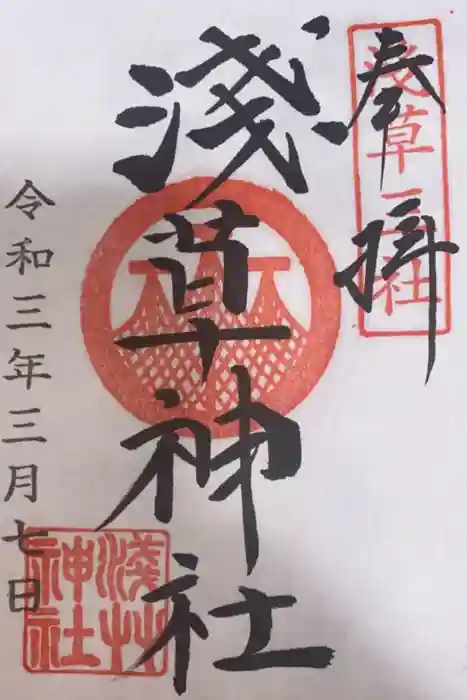 奉拝
浅草三社
淺草神社
令和三年三月七日
淺草神社